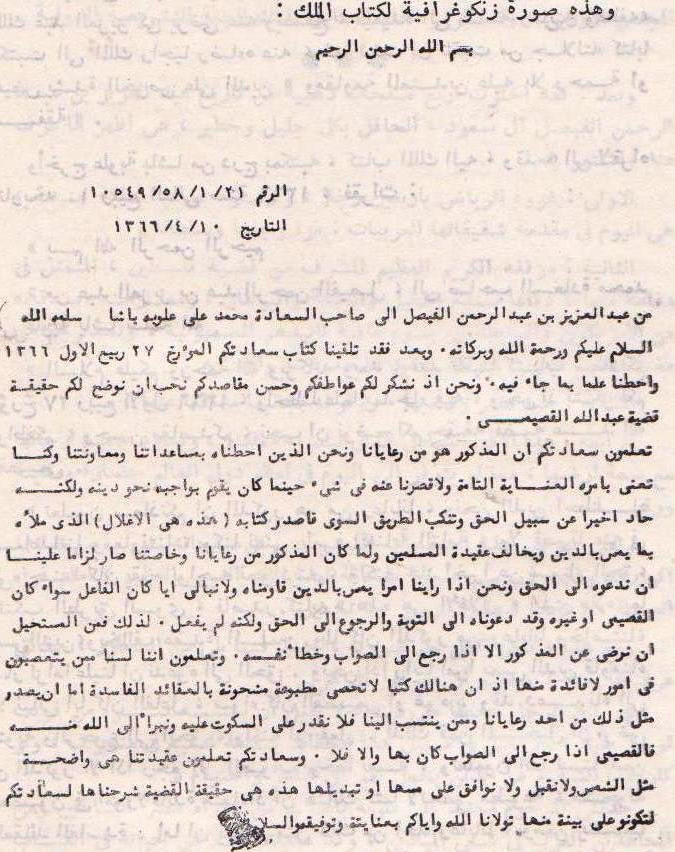 وهذه صورة زنكوغرافية لكتاب الملك :
بسم الله الرحمن الرحيم
الرقم ١٠٥٤٩/٥٨/١/٢١
التاريخ ١٣٦٦/٤/١٠
من عبدالعزيز بن عبدالرحمن الفيصل الى صاحب السعادة محمد على علوبه باشا سلمه الله
السلام عليكم ورحمة الله وبركاته . وبعد فقد تلقينا كتاب سعادتكم المؤرخ ٢٧ ربيع الاول ١٣٦٦
واحطنا علما بما جاء فيه . ونحن اذ نشكر لكم عواطفكم وحسن مقاصدكم نحب ان نوضح لكم حقيقة
قضية عبدالله القصيمى .
تعلمون سعادتكم ان المذكور هو من رعايانا ونحن الذين احطناه بمساعداتنا ومعاونتنا وكنا
نعنى بامره العناية التامة ولا قصرنا عنه فى شىء حينما كان يقوم بواجبه نحو دينه ولكنه
حاد اخيرا عن سبيل الحق وتنكب الطريق السوى فاصدر كتابه ( هذه هى الاغلال ) الذى ملأه
بما يمس بالدين ويخالف عقيدة المسلمين ولما كان المذكور من رعايانا وخاصتنا صار لزاما علينا
ان ندعوه الى الحق ونحن اذا راينا امرا يمس بالدين قاومناه ولا نبالى ايا كان الفاعل سواء كان
القصيمى او غيره وقد دعوناه الى التوبة والرجوع الى الحق ولكنه لم يفعل . لذلك فمن المستحيل
ان نرضى عن المذكور الا اذا رجع الى الصواب وخطأ نفسه . وتعلمون اننا لسنا ممن يتعصبون
فى امور لا فائدة منها اذ ان هنالك كتبا لا تحصى مطبوعة مشحونة بالعقائد الفاسدة اما ان يصدر
مثل ذلك من احد رعايانا وممن ينتسب الينا فلا نقدر على السكوت عليه ونبرأ الى الله منه
فالقصيمى اذا رجع الى الصواب كان بها والا فلا . وسعادتكم تعلمون عقيدتنا هى واضحة
مثل الشمس ولا نقبل ولا نوافق على مسها او تبديلها هذه هى حقيقة القضية شرحناها لسعادتكم
لتكونو على بينة منها تولانا الله واياكم بعنايتة وتوفيقه والسلا